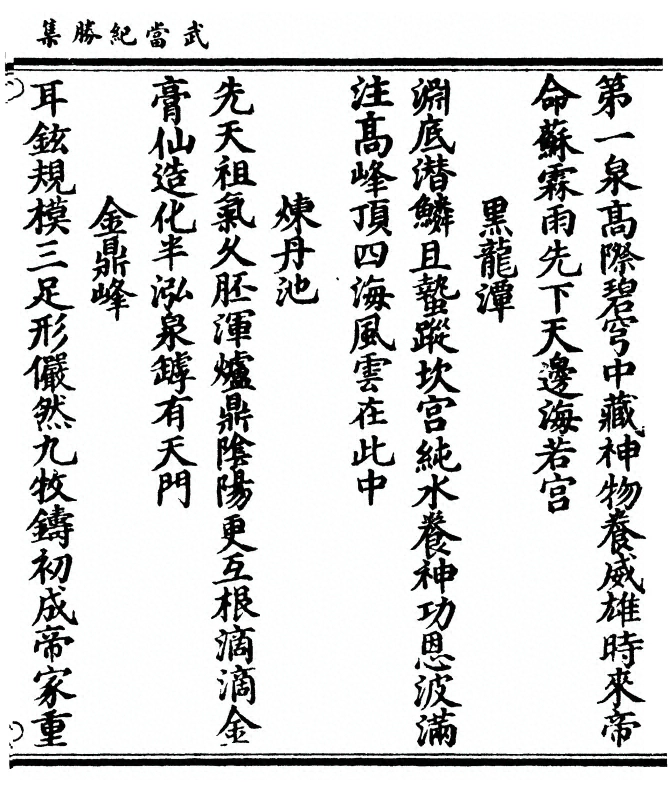 武當紀勝集
第一泉髙際碧穹中藏神物養威雄時來帝
命蘇霖雨先下天邊海若宫
黒龍潭
淵底潜鱗且蟄蹤坎宫純水養神功恩波滿
注髙峰頂四海風雲在此中
煉丹池
先天祖氣久胚渾爐鼎陰陽更互根滴滴金
膏仙造化半泓泉罅有天門
金鼎峰
耳鉉規模三足形儼然九牧鑄初成帝家重